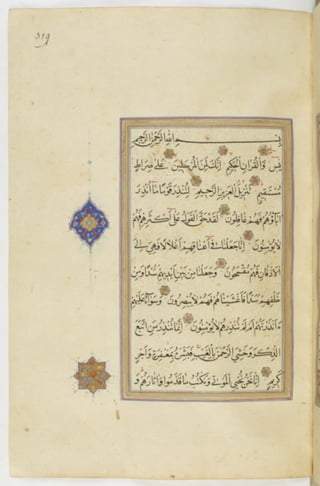 319
بسم الله الرحمن الرحيم
يس والقرآن الحكيم إنك لمن المرسلين على صراط
مستقيم تنزيل العزيز الرحيم لتنذر قوما ما أنذر
آباؤهم فهم غافلون لقد حق القول على أكثرهم فهم
لا يؤمنون إنا جعلنا في أعناقهم أغلالا فهي إلى
الأذقان فهم مقمحون وجعلنا من بين أيديهم سدا ومن
خلفهم سدا فأغشيناهم فهم لا يبصرون وسواء عليهم
ءأنذرتهم أم لم تنذرهم لا يؤمنون إنما تنذر من اتبع
الذكر وخشي الرحمن بالغيب فبشره بمغفرة وأجر
كريم إنا نحن نحيي الموتى ونكتب ما قدموا وآثارهم و